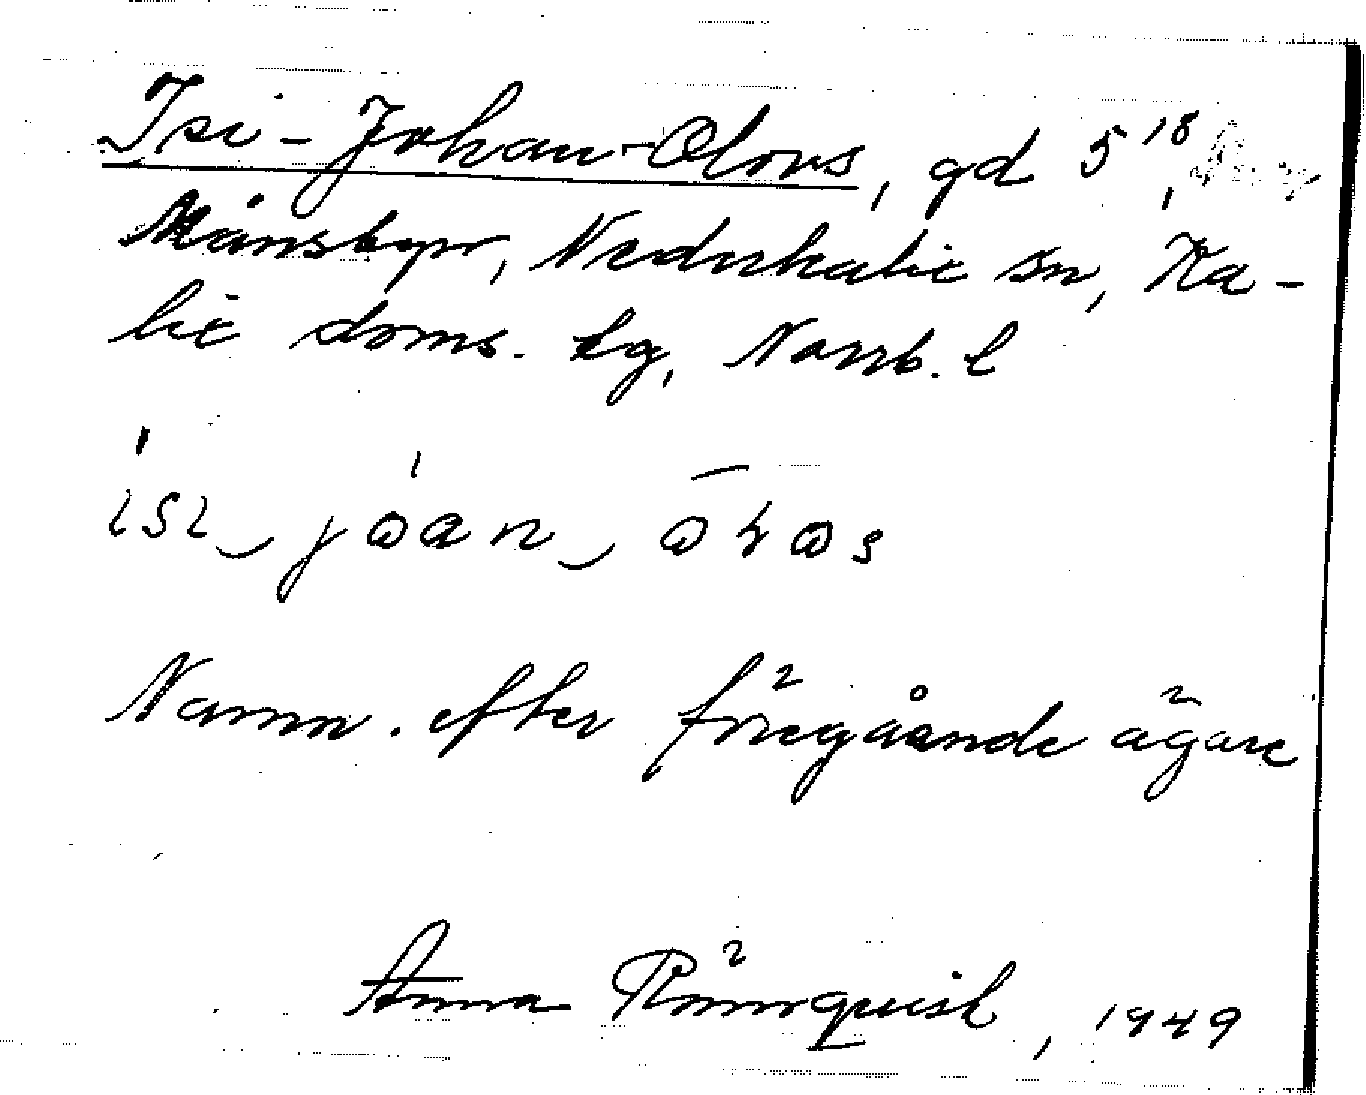 Isi-Johan-Olovs, gd 5¹⁸,
Månsbyn, Nederkalix sn, Ka-
lix doms. tg, Norrb. l
ɩsɩ‿jɷan‿ɷlɷs
Namn. efter föregående ägare
Anna Rönnquist, 1949